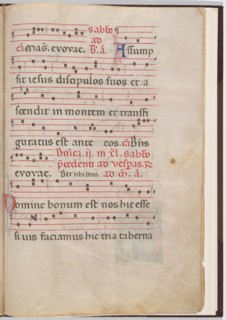 sabb̄o
ad
Mag̃. evovae. Assump
sit iesus discipulos suos et a
scendit in montem et transfi
guratus est ante eos.
Dn̄ica .ii. in xl. sabb̄o
p̄cedenti ad vesp̄as.
evovae.
Domine bonum est nos hic esse
si vis faciamus hic tria taberna